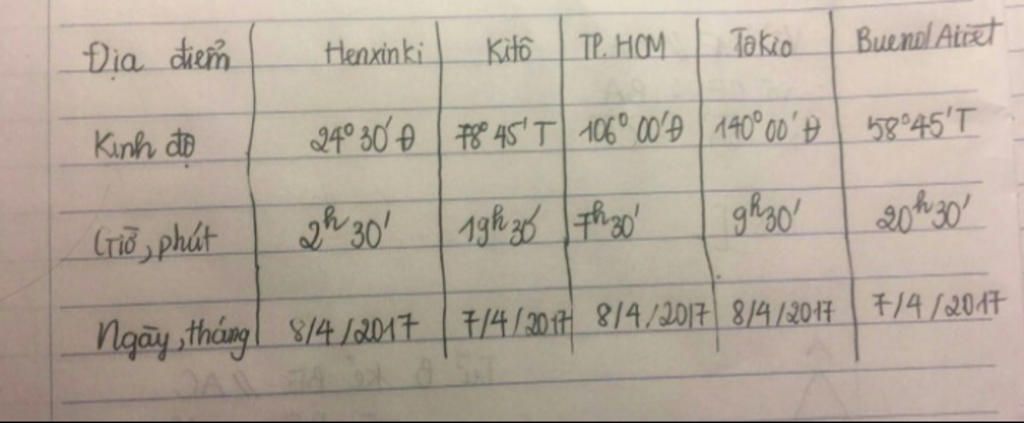 Địa điểm Henxinki Kitô TP.HCM Tokio Buenol Airet
Kinh độ 24° 30' Đ 78° 45' T 106° 00' Đ 140° 00' Đ 58° 45' T
Giờ, phút 2h 30' 19h 30' 7h 30' 9h 30' 20h 30'
Ngày, tháng 8/4/2017 7/4/2017 8/4/2017 8/4/2017 7/4/2017